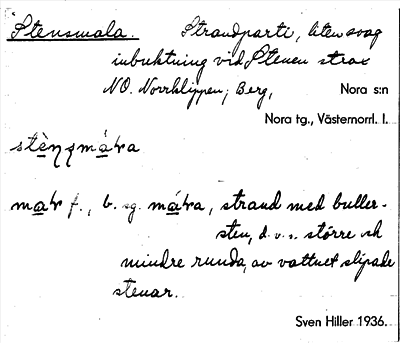 Stensmala. Strandparti, liten svag
inbuktning vid Stenen strax
NO. Norrklippen; Berg, Nora s:n
Nora tg., Västernorrl. l.
mar f., b. sg. mára, strand med buller-
sten, d. v. s. större och
mindre runda, av vattnet slipade
stenar.
Sven Hiller 1936.